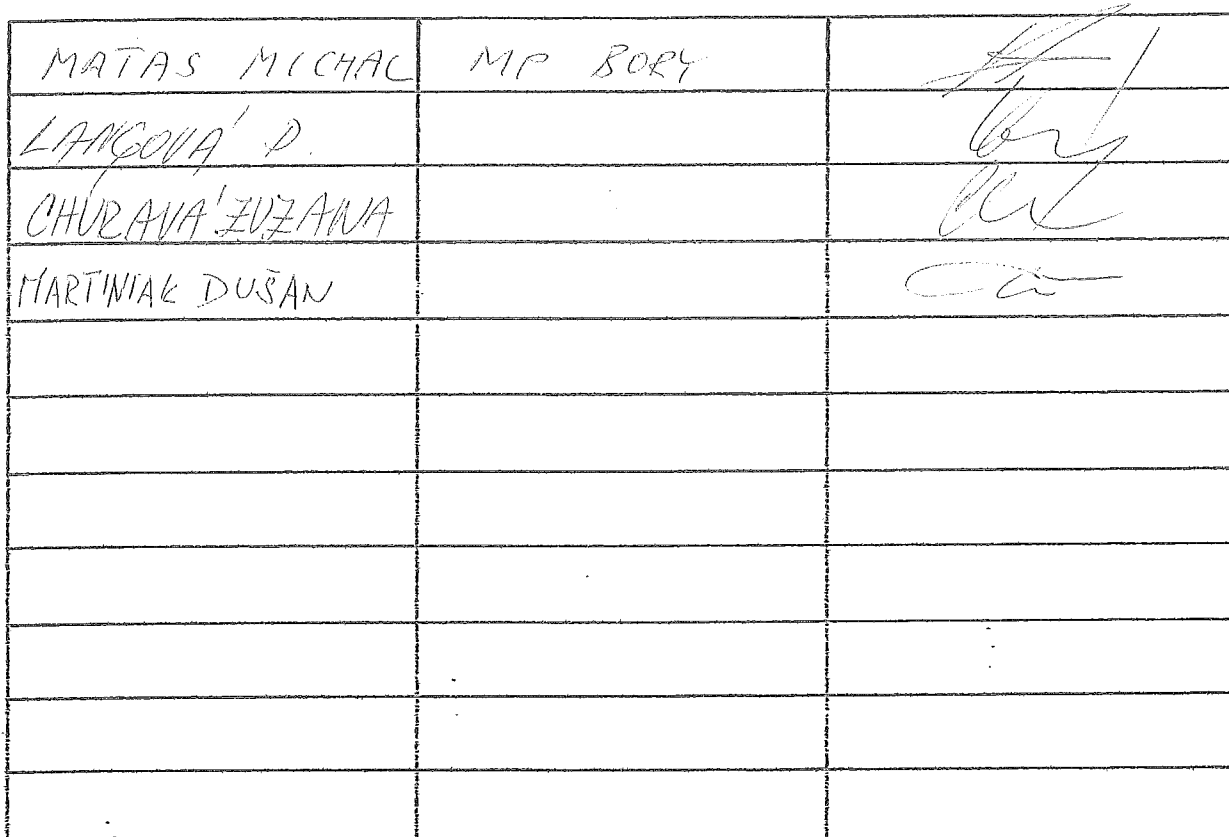 MATAS MICHAL MP BORY
LANGOVÁ D.
CHURAVÁ ZUZANA
MARTINIAK DUŠAN